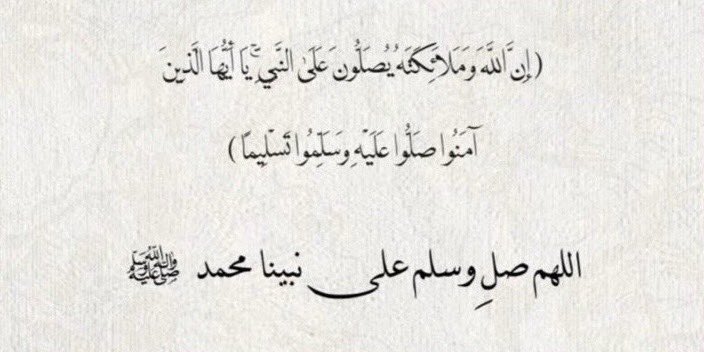 (إِنَّ اللَّهَ وَمَلَائِكَتَهُ يُصَلُّونَ عَلَى النَّبِيِّ ۚ يَا أَيُّهَا الَّذِينَ
آمَنُوا صَلُّوا عَلَيْهِ وَسَلِّمُوا تَسْلِيمًا)
اللهم صلِ وسلم على نبينا محمد ﷺ